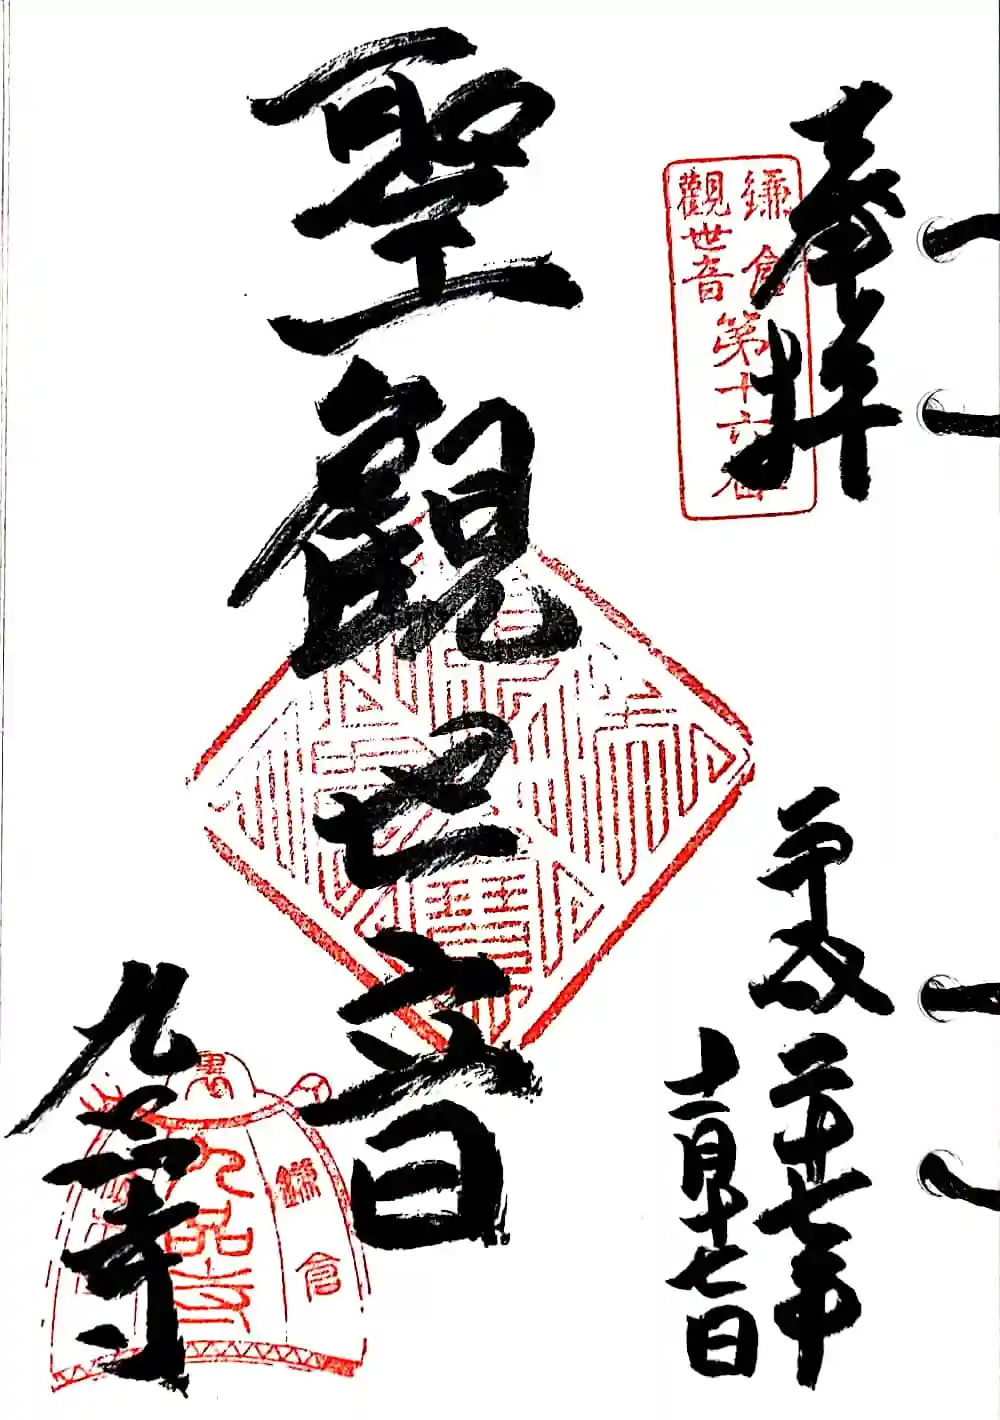 奉拝
鎌倉
觀世音
第十六番
平成二十七年
十一月十七日
聖観世音
九品寺
鎌倉
九品寺